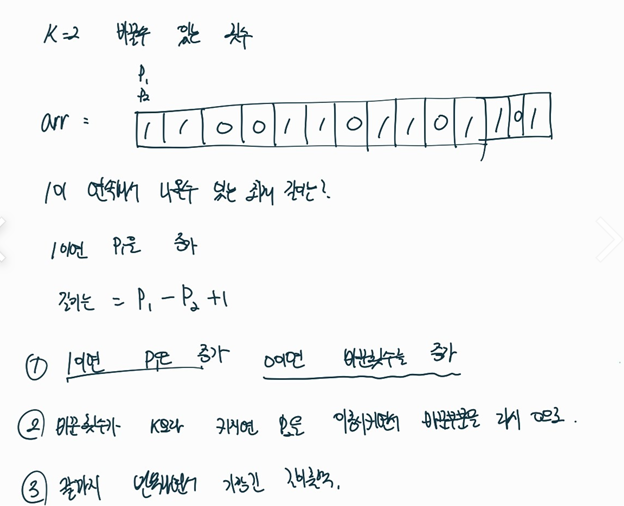 K=2 바꿀수 있는 횟수
P₁
P₂
arr = 1 1 0 0 1 1 0 1 1 0 1 1 0 1
1이 연속해서 나올수 있는 최대 길이는?
1이면 P₁을 증가
길이는 = P₁ - P₂ + 1
① 1이면 증가 0이면 바꾼횟수를 증가
② 바꾼횟수가 K보다 커지면 P₂를 이동시키면서 바꾼부분을 다시 0으로.
③ 끝까지 반복하면서 가장긴 길이출력.